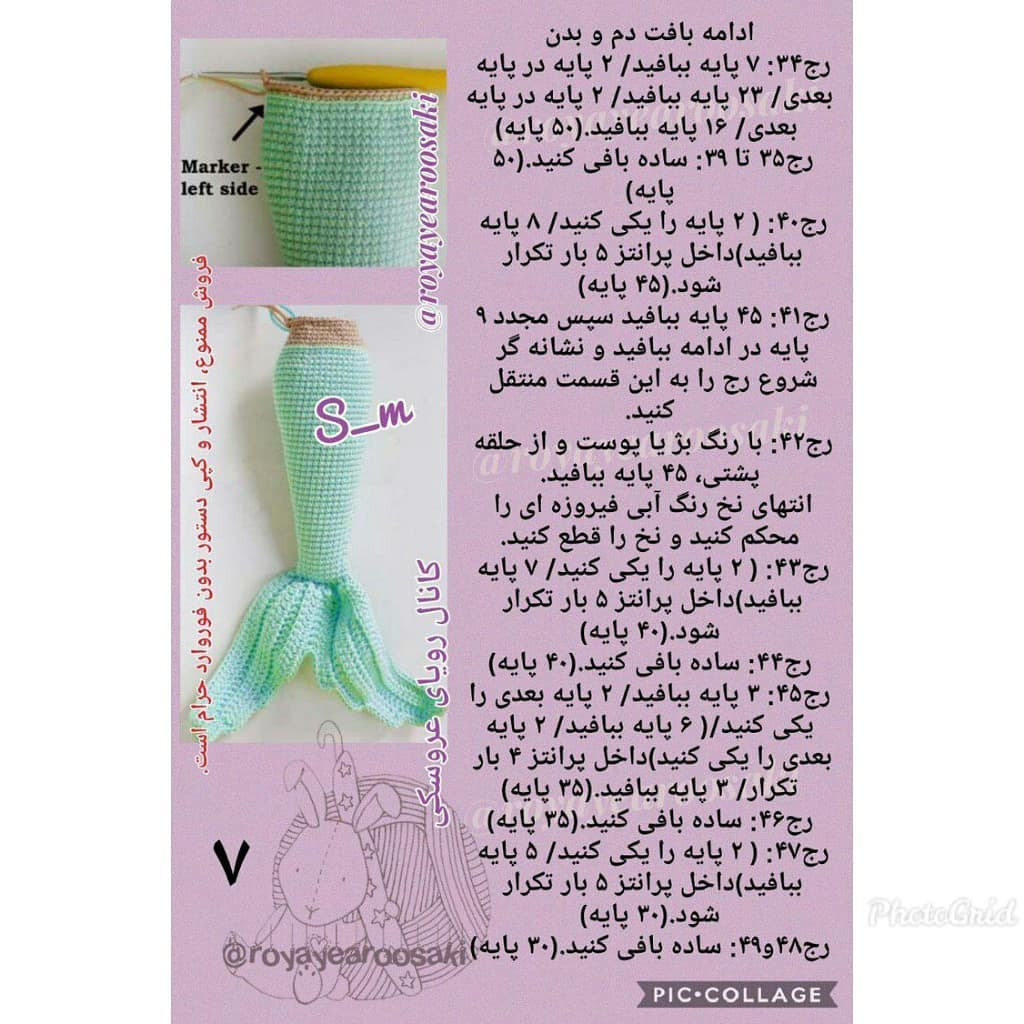 ادامه بافت دم و بدن
رج۳۴: ۷ پایه ببافید/ ۲ پایه در پایه
بعدی/ ۲۳ پایه ببافید/ ۲ پایه در پایه
بعدی/ ۱۶ پایه ببافید.(۵۰ پایه)
رج۳۵ تا ۳۹: ساده بافی کنید.(۵۰
پایه)
رج۴۰: ( ۲ پایه را یکی کنید/ ۸ پایه
ببافید)داخل پرانتز ۵ بار تکرار
شود.(۴۵ پایه)
رج۴۱: ۴۵ پایه ببافید سپس مجدد ۹
پایه در ادامه ببافید و نشانه گر
شروع رج را به این قسمت منتقل
کنید.
رج۴۲: با رنگ بژ یا پوست و از حلقه
پشتی، ۴۵ پایه ببافید.
انتهای نخ رنگ آبی فیروزه ای را
محکم کنید و نخ را قطع کنید.
رج۴۳: ( ۲ پایه را یکی کنید/ ۷ پایه
ببافید)داخل پرانتز ۵ بار تکرار
شود.(۴۰ پایه)
رج۴۴: ساده بافی کنید.(۴۰ پایه)
رج۴۵: ۳ پایه ببافید/ ۲ پایه بعدی را
یکی کنید/( ۶ پایه ببافید/ ۲ پایه
بعدی را یکی کنید)داخل پرانتز ۴ بار
تکرار/ ۳ پایه ببافید.(۳۵ پایه)
رج۴۶: ساده بافی کنید.(۳۵ پایه)
رج۴۷: ( ۲ پایه را یکی کنید/ ۵ پایه
ببافید)داخل پرانتز ۵ بار تکرار
شود.(۳۰ پایه)
رج۴۸و۴۹: ساده بافی کنید.(۳۰ پایه)
Marker -
left side
@royayearoosaki
S_m
کانال رویای عروسکی
فروش ممنوع، انتشار و کپی دستور بدون فوروارد حرام است.
۷
@royayearoosaki
@royayearoosaki
@royayearoosaki
@royayearoosaki
PhotoGrid
PIC•COLLAGE